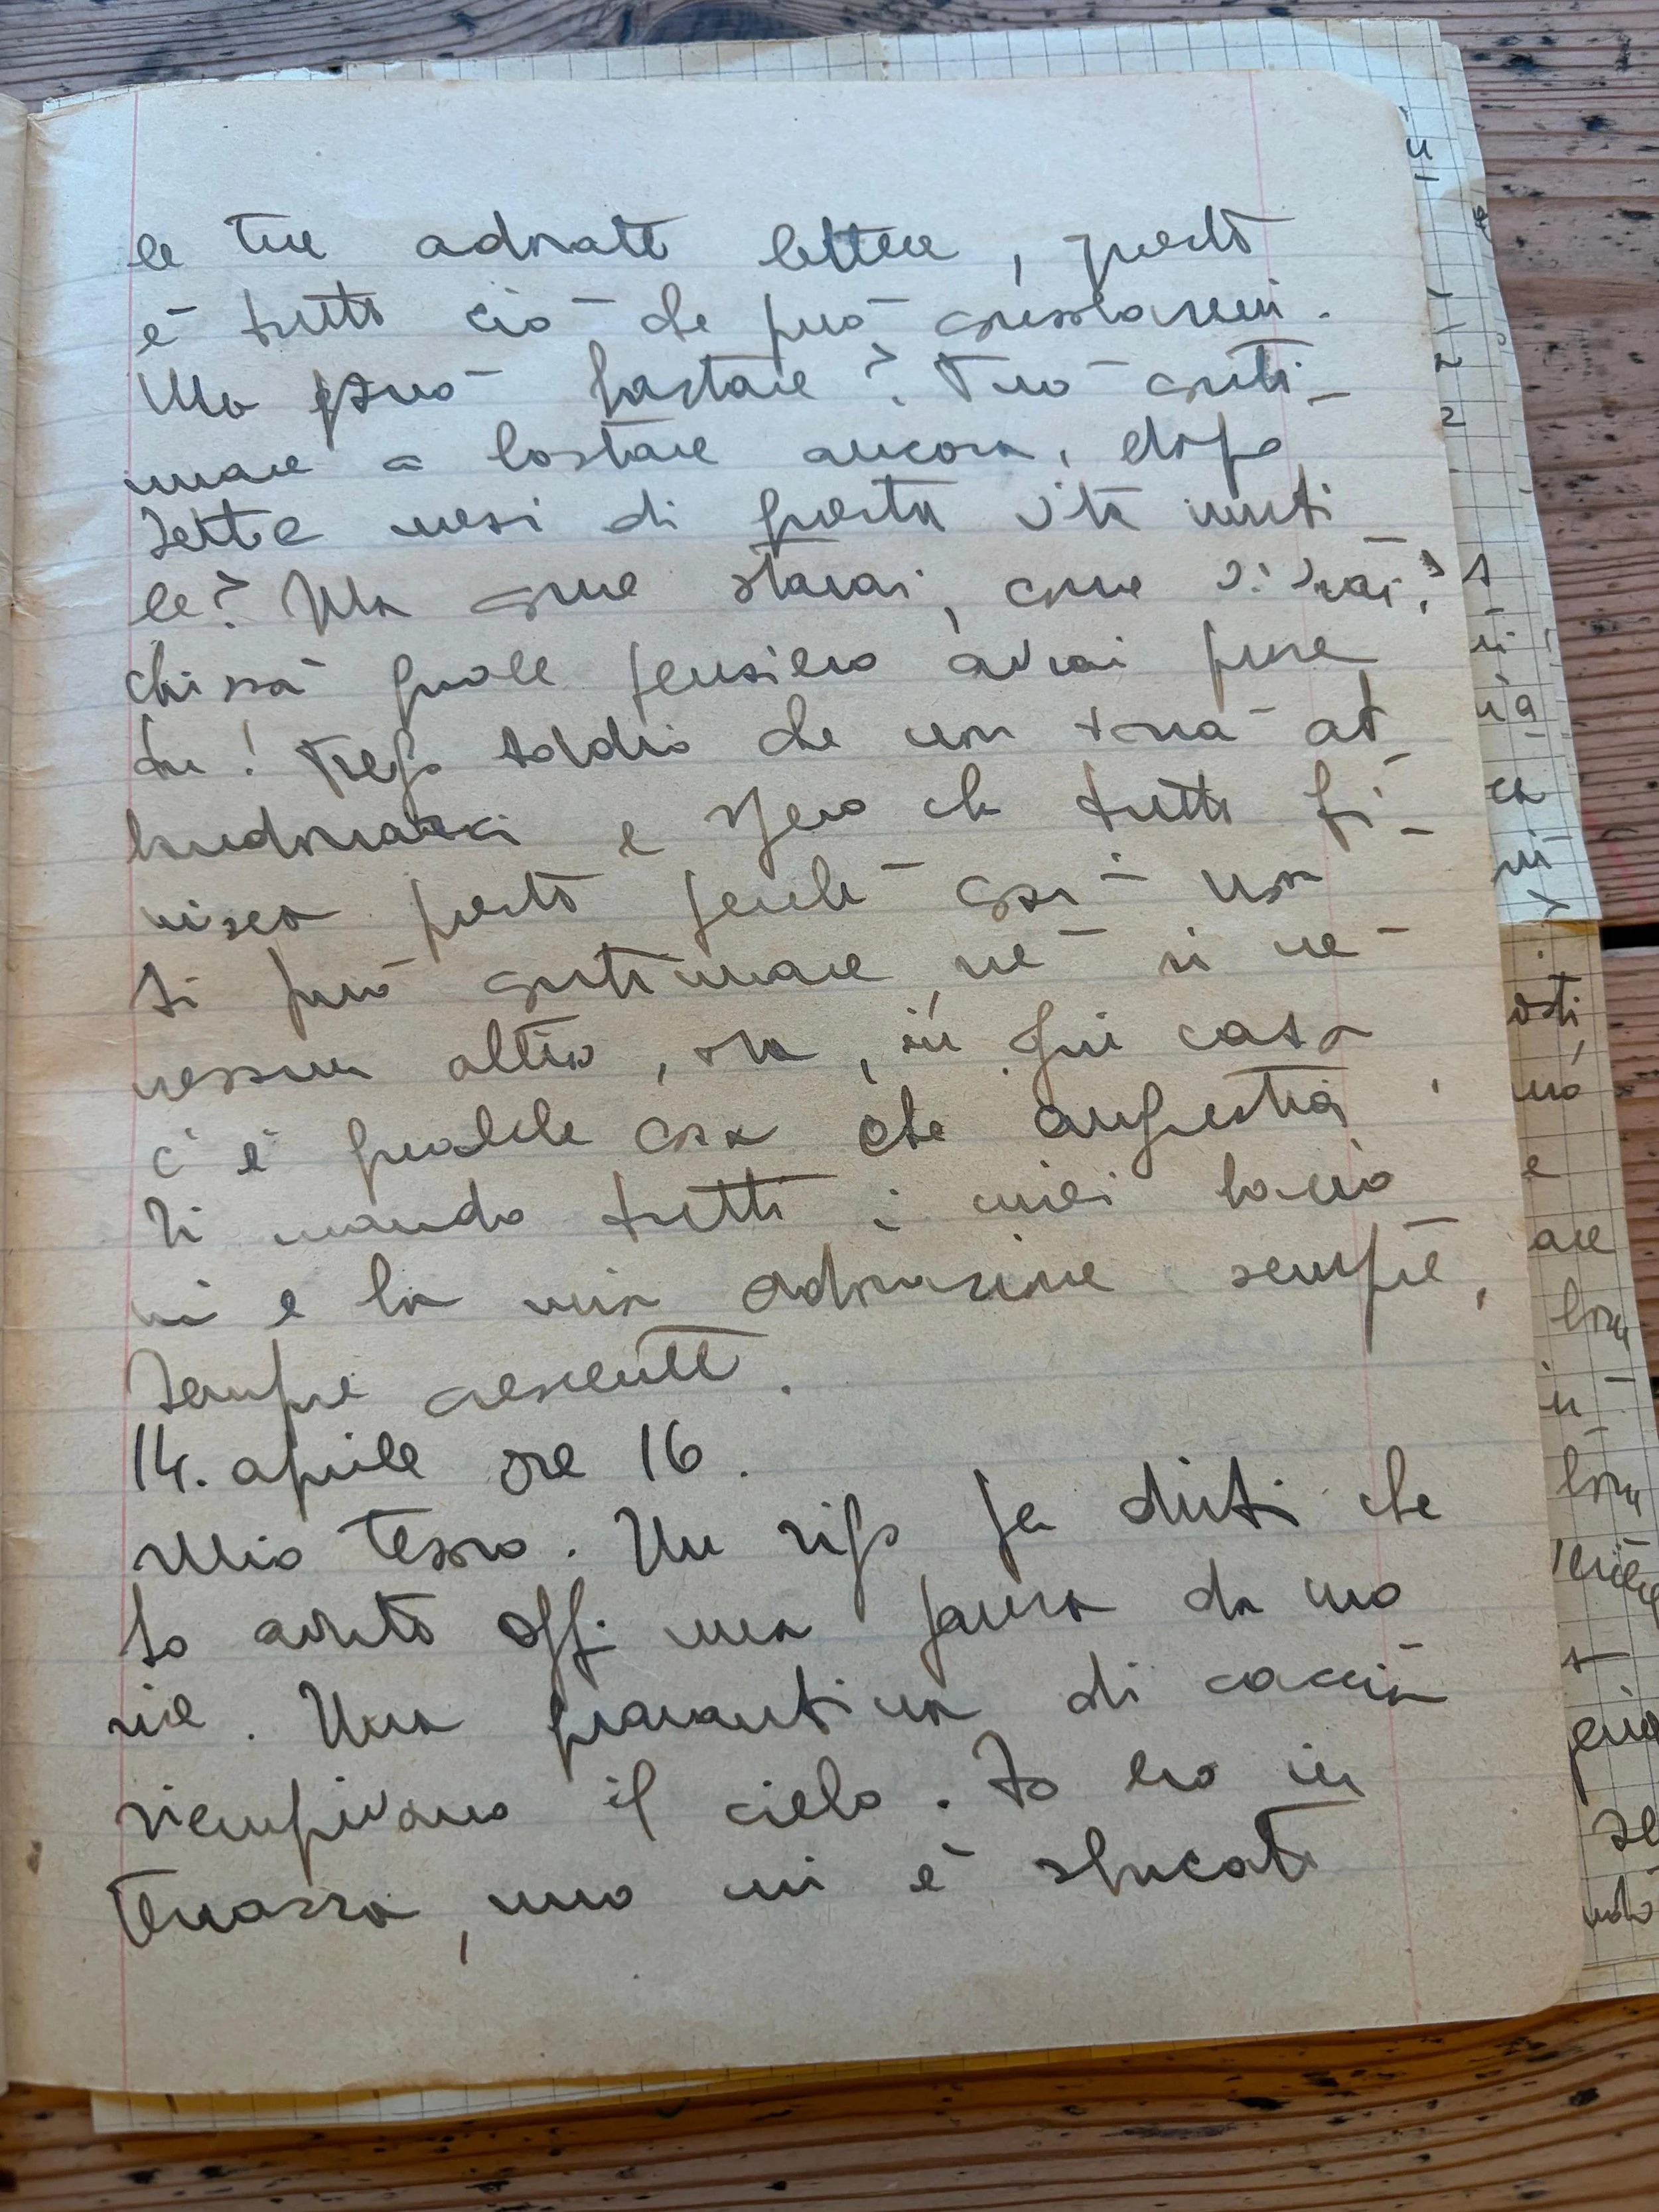 le tue adorate lettere, questo
è tutto ciò che può consolarmi.
Ma può bastare? Può conti-
nuare a bastare ancora, dopo
sette mesi di questa vita inuti
le? Ma come starai, come vivrai?
chissà quale pensiero avrai pure
tu! Prego Iddio che non vorrà ab-
bandonarci e spero che tutto fi-
nisca presto perchè così non
si può continuare, nè noi nè
nessun altro, ora, in ogni casa
c'è qualche cosa che angustia.
Ti mando tutti i miei bacio
ni e la mia adorazione sempre,
sempre crescente.
14. aprile ore 16.
Mio tesoro. Un rigo per dirti che
ho avuto oggi una paura da mo
rire. Una quarantina di caccia
riempivano il cielo. Io ero in
terrazza, uno mi è sbucato
ù
2
osti
e
are